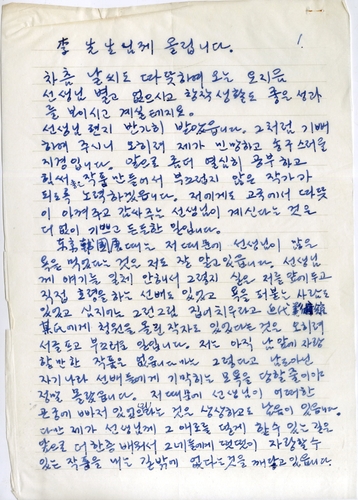 李 선생님께 올립니다. 1.
차츰 날씨도 따뜻하여 오는 요지음
선생님 별고 없으시고 창작생활도 좋은 성과
를 보이시고 계실테지요.
선생님 편지 반가히 받았읍니다. 그처럼 기뻐
하여 주시니 오히려 제가 민망하고 송구스러울
지경입니다. 앞으로 좀더 열심히 공부하고
힘써 좋은 작품 만들어서 부끄럽지 않은 작가가
되도록 노력하겠읍니다. 저에게도 고국에서 따뜻
이 아껴주고 감싸주는 선생님이 계신다는 것은
더없이 기쁘고 든든한 일입니다.
東京韓國展 때는 저 때문에 선생님이 많은
욕을 먹었다는 것은 저도 잘 알고있읍니다. 선생님
께 얘기는 일체 안해서 그렇지 실은 저를 앞에두고
직접 호령을 하는 선배도 있었고 욕을 퍼붓는 사람도
있었고 심지어는 그런그림 집어치우라고 近代
某氏에게 청원을 올린 작자도 있었다는 것은 오히려
서글프고 부끄러운 일입니다. 저는 아직 남앞에 자랑
할만한 작품은 없읍니다마는 그렇다고 남도아닌
자기나라 선배들에게 기막히는 모욕을 당할줄이야
정말 몰랐읍니다. 저 때문에 선생님이 어떠한
곤궁에 빠져 있었는가는 것은 상상하고도 남음이 있읍니다.
다만 제가 선생님께 그 애로를 덜게 할수 있는 길은
앞으로 더한층 배워서 그네들에게 떳떳이 자랑할수
있는 작품을 내는 길밖에 없다는것을 깨닫고 있읍니다.